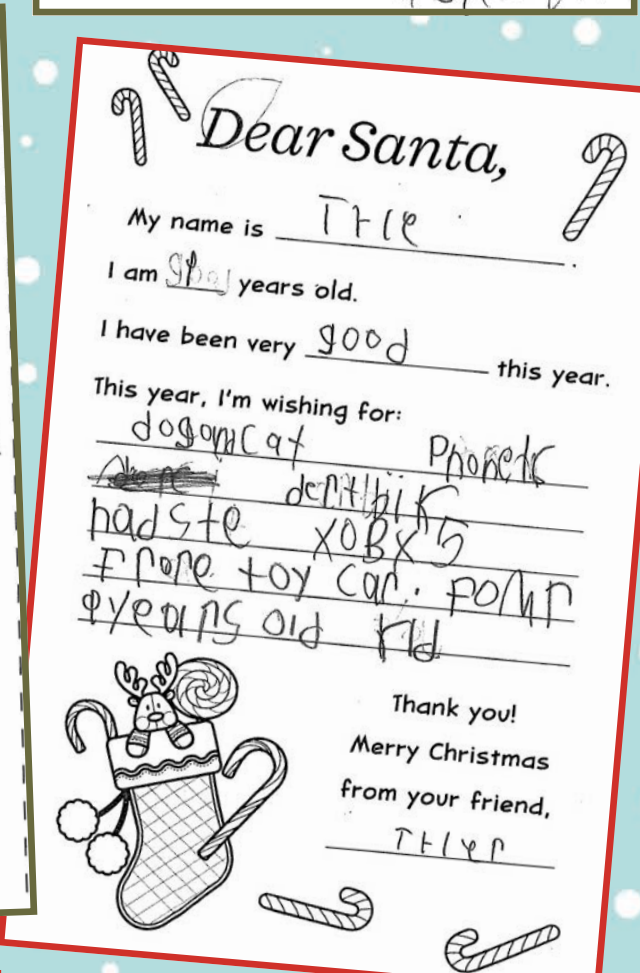 Dear Santa,
My name is TrIe.
I am years old.
I have been very good this year.
This year, I'm wishing for:
dogomcat Phonetc
dertlbik
hadste XOBX 5
Frore toy car. Fohr
eyears old kid
Thank you!
Merry Christmas
from your friend,